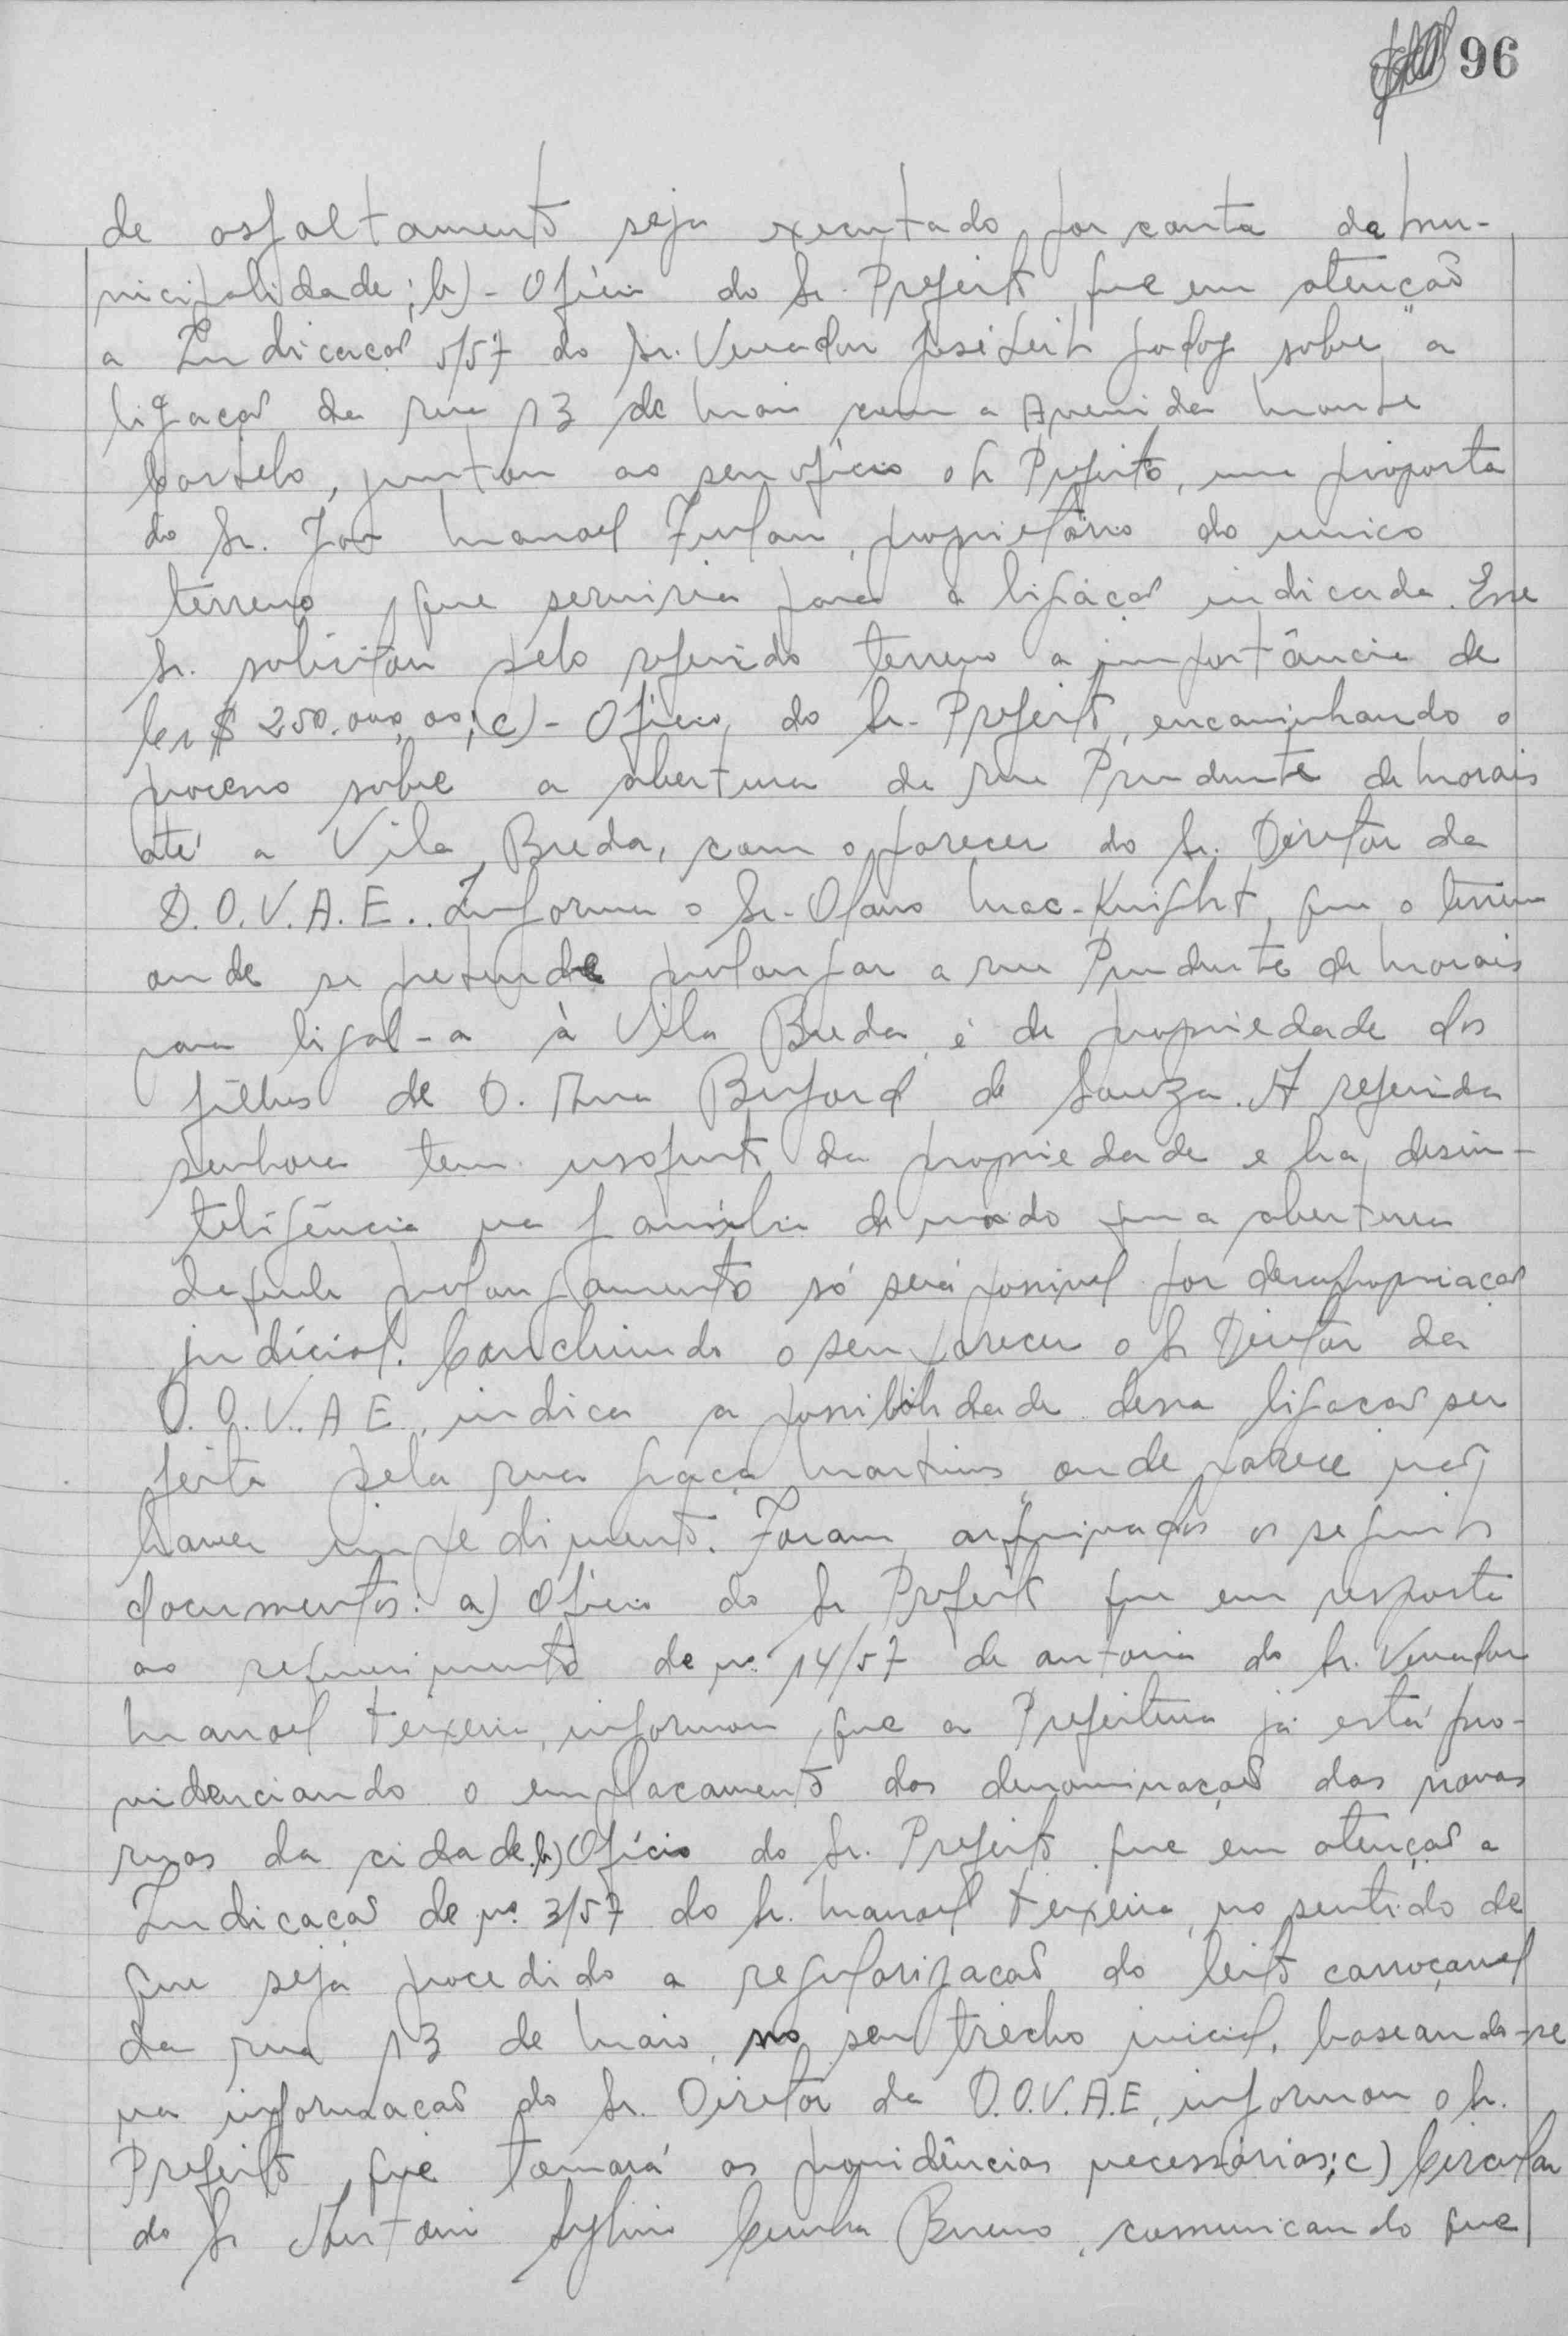 96
de asfaltamento seja executado por conta da mu-
nicipalidade; b) - Ofício do Sr. Prefeito que em atenção
a Indicação 5/57 do Sr. Vereador José Leite Godoy sobre "a
ligação da rua 13 de Maio com a Avenida Monte
Castelo, juntou ao seu ofício o Sr Prefeito, uma proposta
do Sr. João Manoel Furlan, proprietário do unico
terreno que serviria para a ligação indicada. Esse
Sr. solicitou pelo referido terreno a importância de
Cr$ 250.000,00; c) - Ofício do Sr. Prefeito, encaminhando o
processo sobre a abertura da rua Prudente de Morais
até a Vila Breda, com o parecer do Sr. Diretor da
D.O.V.A.E.. Informa o Sr. Olavo Mac-Knight, que o terreno
onde se pretende prolongar a rua Prudente de Morais
para ligal-a à Vila Breda é de propriedade dos
filhos de D. Ana Buford de Souza. A referida
senhora tem usofruto da propriedade e ha desin-
teligência na família de modo que a abertura
daquele prolongamento só será possivel por desapropriação
judicial. Concluindo o seu parecer o Sr Diretor da
D.O.V.A E, indica a possibilidade dessa ligação ser
feita pela rua Graça Martins onde parece não
haver impedimento. Foram arquivados os seguintes
documentos: a) Ofício do Sr Prefeito que em resposta
ao requerimento de nº 14/57 de autoria do Sr. Vereador
Manoel Teixeira, informou que a Prefeitura já está pro-
videnciando o emplacamento das denominações das novas
ruas da cidade. b) Ofício do Sr. Prefeito que em atenção a
Indicação de nº 3/57 do Sr. Manoel Teixeira, no sentido de
que seja procedido a regularização do leito carroçavel
da rua 13 de Maio, no seu trecho inicial, baseando-se
na informação do Sr. Diretor da D.O.V.A.E, informou o Sr.
Prefeito que tomará as providências necessárias; c) Circular
do Sr Antonio Sylvio Cunha Bueno, comunicando que